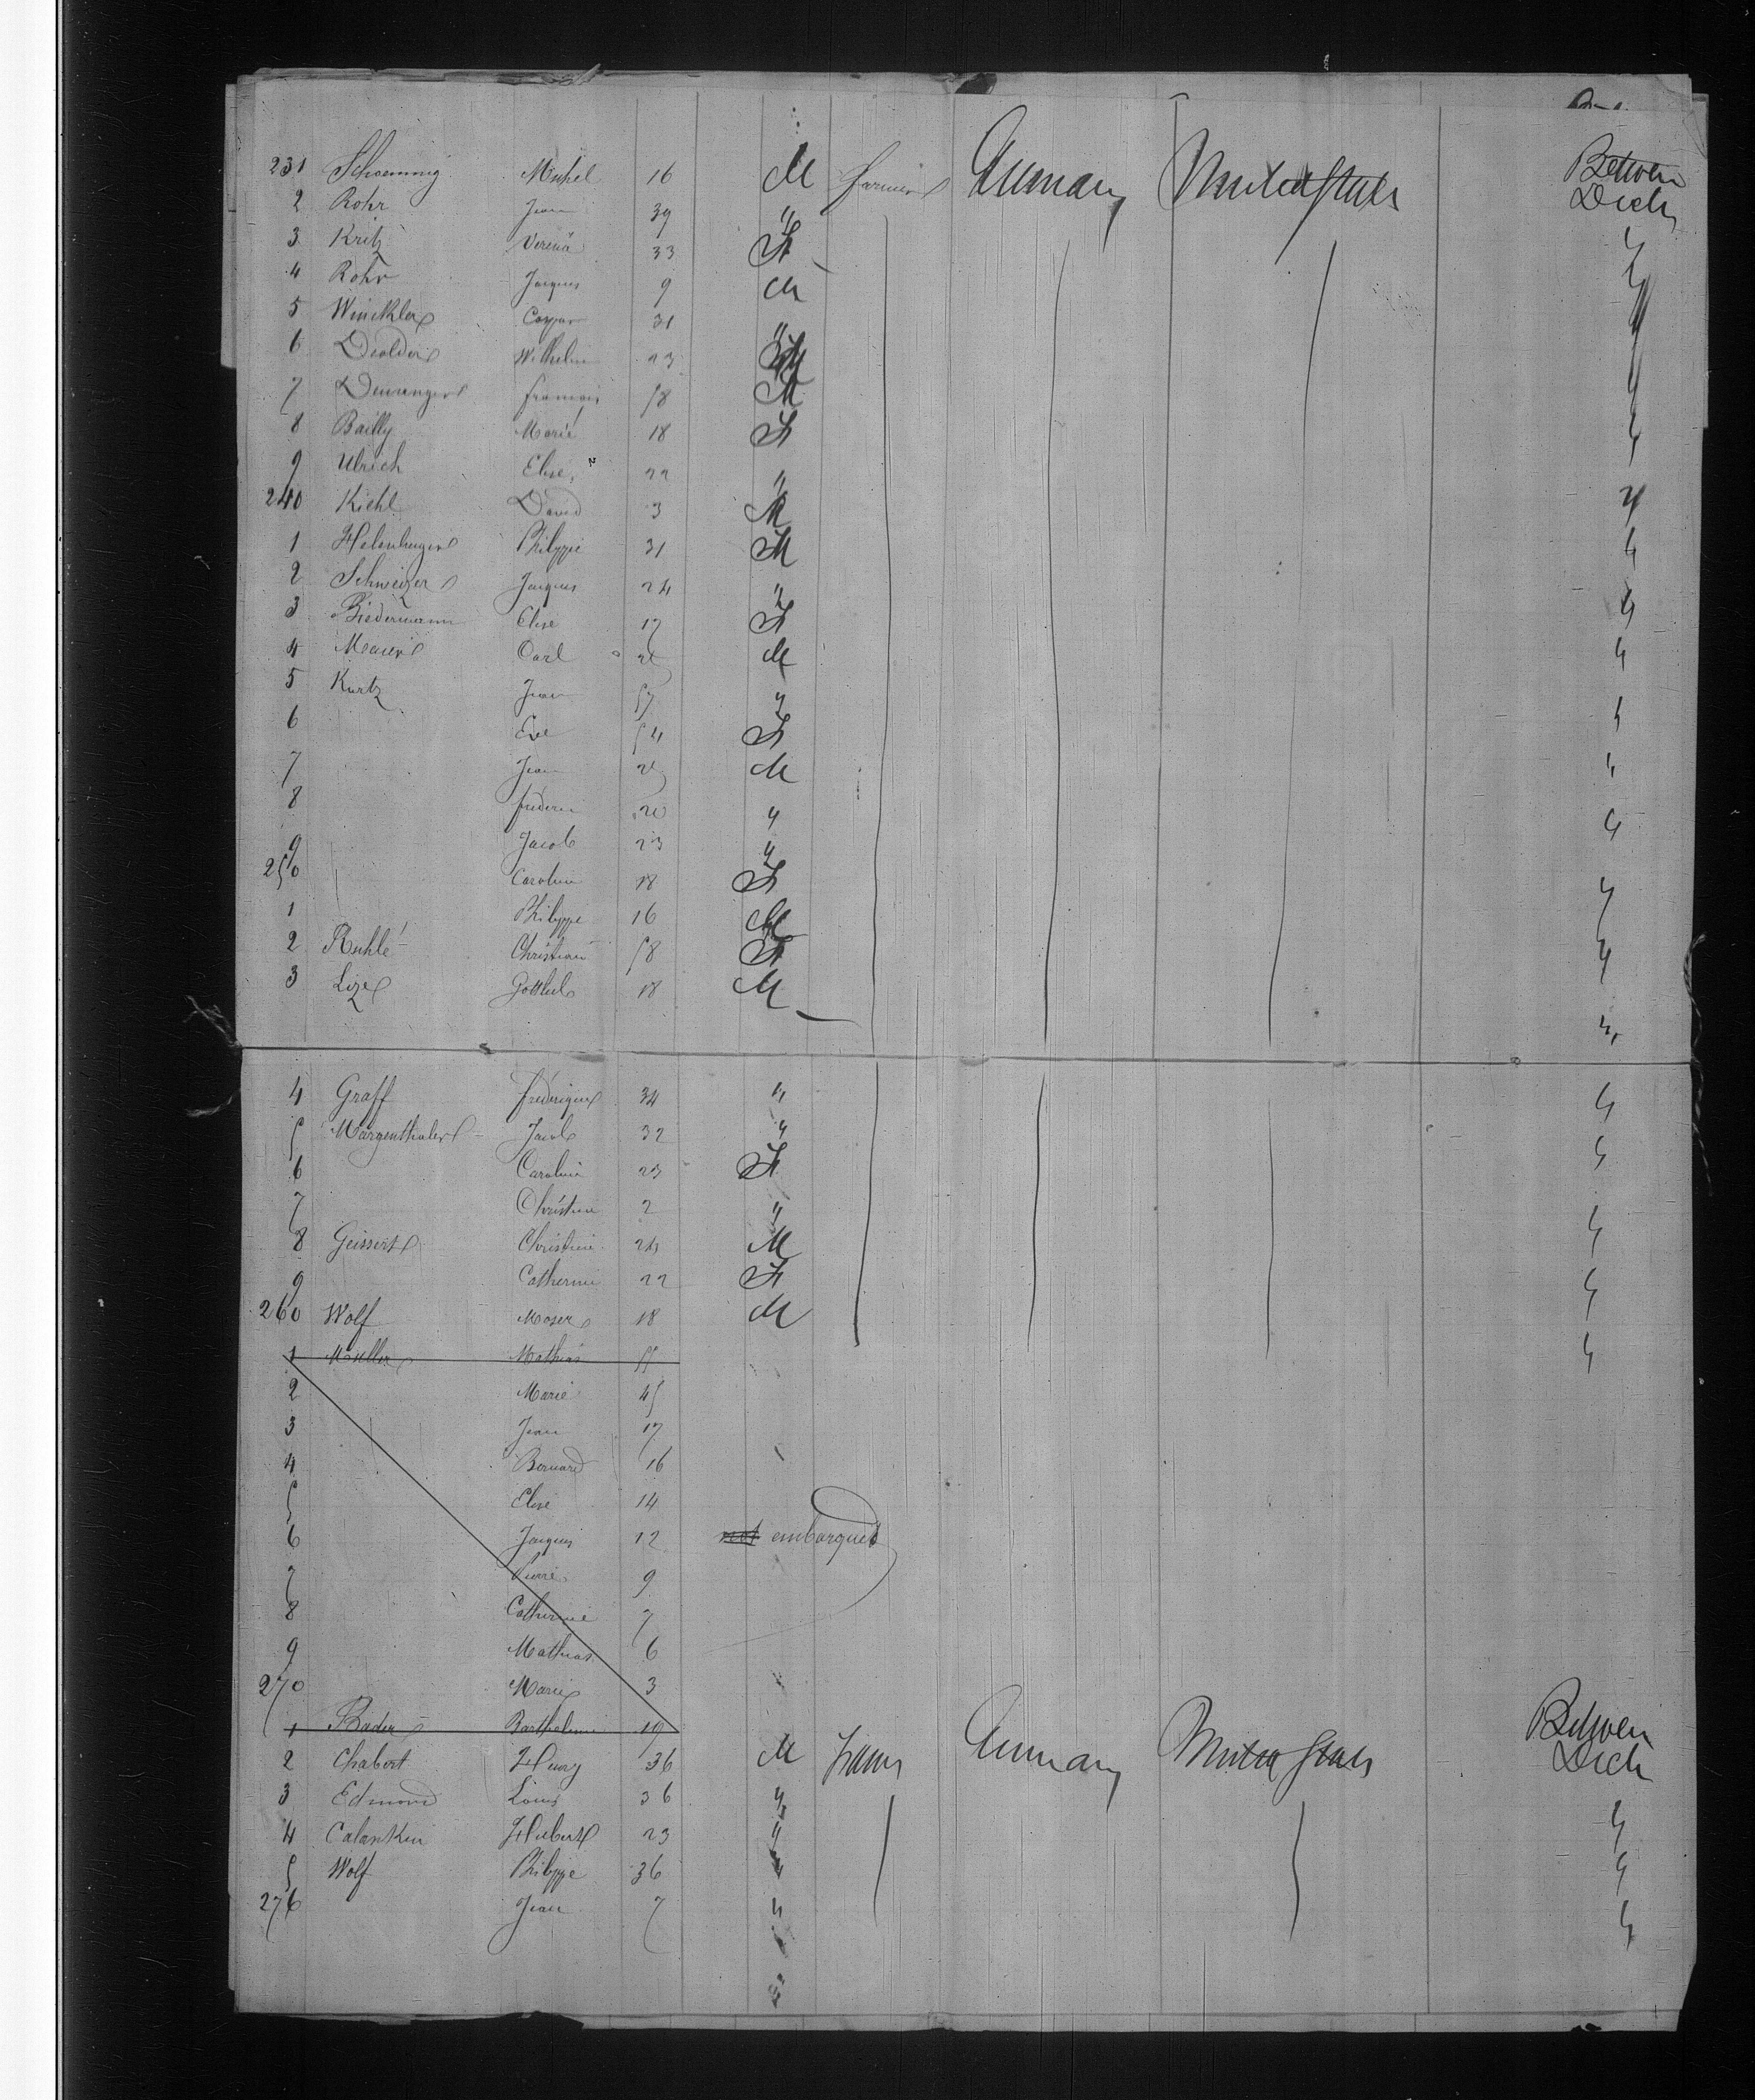 231 Schoenning Michel 16 M farmer Germany United States Betwen
Deck
2 Rohr Jean 39 "
3 Kritz Verena 33 F "
4 Rohr Jacques 9 M "
5 Winckler Caspar 31 " "
6 Wilhelm 23 M "
7 francois 58 M "
8 Bailly Marie 18 F "
9 Ulrich Elise 22 "
240 Kiehl David 3 M "
1 Philippe 31 M "
2 Schweizer Jacques 24 " "
3 Biedermann Elise 17 F
4 Meurer Carl M "
5 Kurtz Jean 57 " "
6 Eve 54 F
7 Jean M "
8 20 " "
9 Jacob 23 "
250 Caroline 18 F "
1 Philippe 16 M
2 Ruhlé Christian 58 F "
3 Lize Gottlieb 18 M "
4 Graff frederique 34 " "
5 Margenthaler Jacob 32 " "
6 Caroline 23 F
7 Christine 2 " "
8 Geissert Christine 24 M
9 Catherine 22 F "
260 Wolf Moser 18 M "
1 Muller Mathias 55
2 Marie 45
3 Jean 17
4 Bernard 16
5 Elise 14
6 Jacques 12 not embarqued
7 Pierre 9
8 Catherine 7
9 Mathias 6
270 Marie 3
1 Bader 19 Betwen
2 Chabert Henry 36 M Germany United States Deck
3 Edmond Louis 36 " "
4 Calankin Hubert 23 "
5 Wolf Philippe 36 "
276 Jean 7 " "